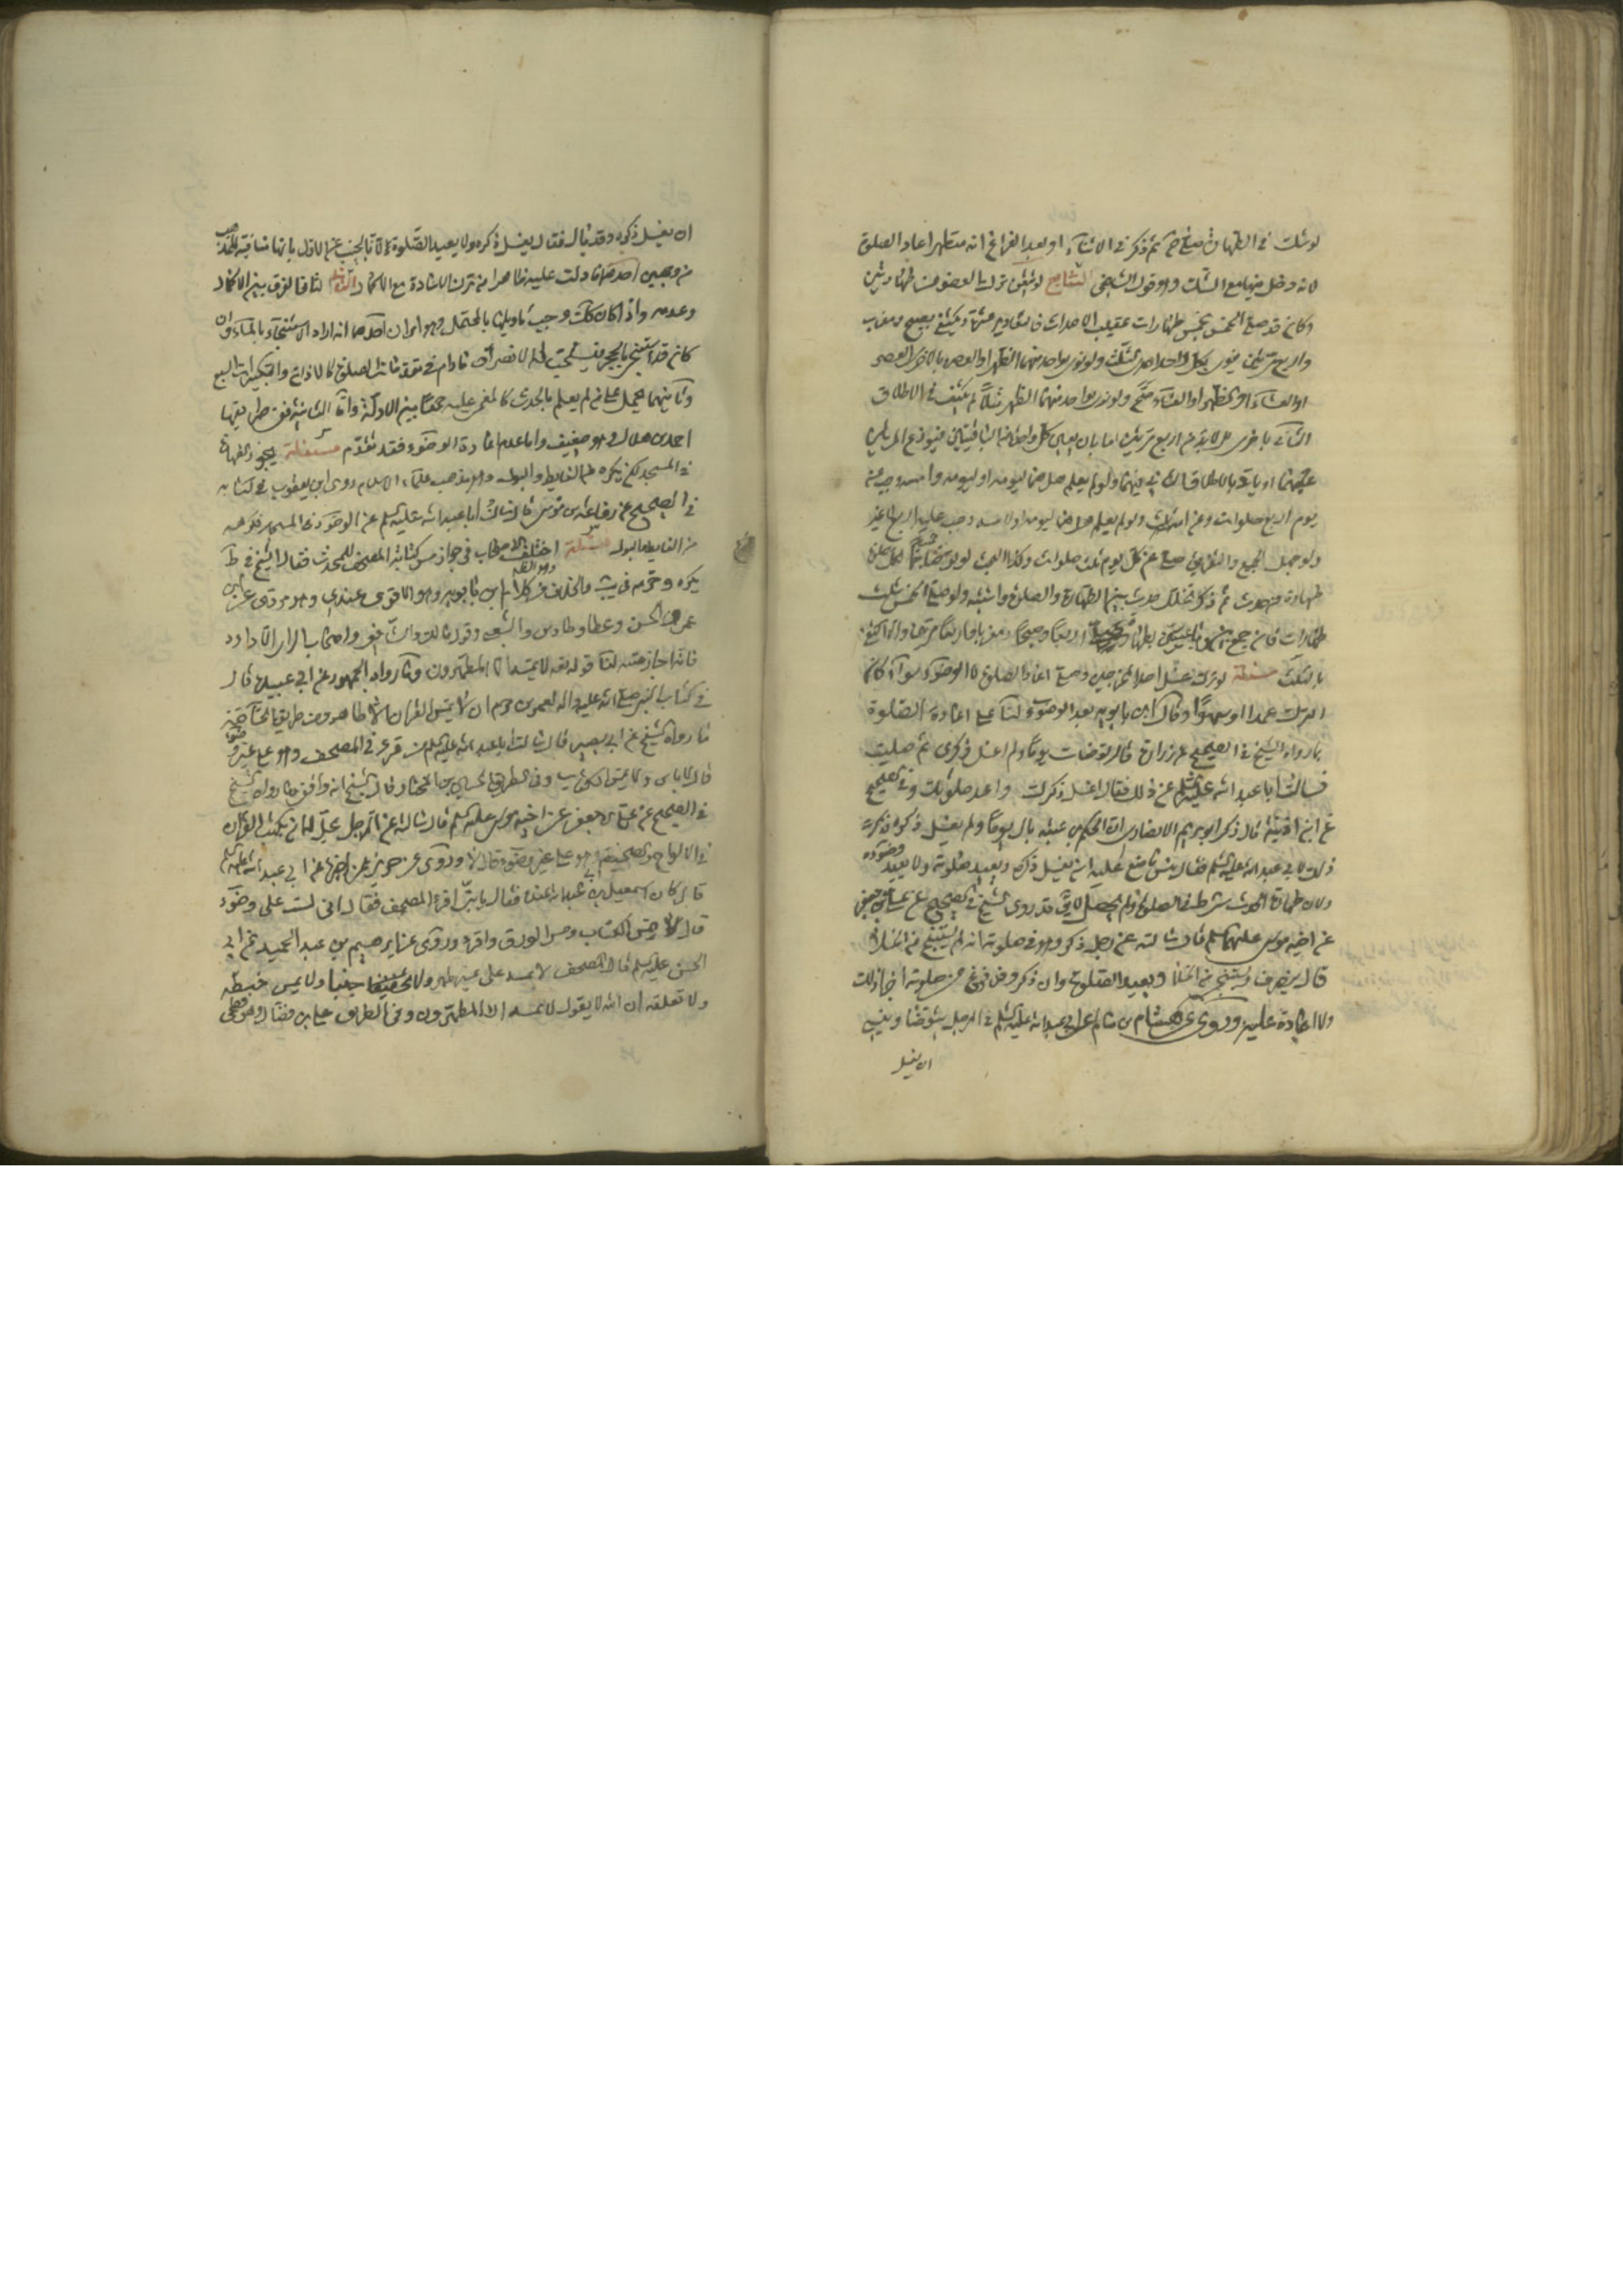 لو شك في الطهارة فصلى ثم ذكر في الاثناء او بعد الفراغ انه متطهر اعاد الصلوة
لانه دخل فيها مع الشك وهو قول الشافعي التاسع لو تيقن ترك العضو من طهارتين
وكان قد صلى الخمس بخمس طهارات عقيب الاحداث فالمقادير عشاء ويكتفي بصبح ومغرب
واربع مرتين ينوي بكل واحدة احدى الثلث ولو نوى بواحدة منهما الظهر او العصر وبالاخرى العصر
او العشاء او الظهر او العشاء صح ولو نوى بواحدة منهما الظهر مثلا لم يكتف في الاطلاق
الثنائي باخرى بل لا بد من اربع مرتين اما بان يعين كل واحدة من الباقيتين
عينهما او ياتي بالاطلاق الثنائي فيهما ولو لم يعلم هل هما ليومه او ليومه وامسه وجب عن
يوم اربع صلوات وعن امسه ثلث ولو لم يعلم هل هما ليومه او لامسه وجب عليه اربع لا غير
ولو جهل الجمع والتفريق صلى عن كل يوم ثلث صلوات وكذا البحث لو توضأ خمسا لكل صلوة
طهارة عن حدث ثم ذكر تخلل حدث بين الطهارة والصلوة واشتبه ولو صلى الخمس بثلث
طهارات فان جمع بين اربعا وصبحا ومغربا واربعا مرتين والا اكتفى
بالثلث مسئلة لو ترك غسل احد المخرجين وصلى اعاد الصلوة لا الوضوء سواء كان
الترك عمدا او سهوا وقال ابن بابويه يعيد الوضوء لنا على اعادة الصلوة
ما رواه الشيخ في الصحيح عن زرارة قال توضات يوما ولم اغسل ذكري ثم صليت
فسالت ابا عبد الله عليه السلم عن ذلك فقال اغسل ذكرك واعد صلوتك وفي الصحيح
عن ابن اذينة قال ذكر ابو مريم الانصاري ان الحكم بن عتيبة بال يوما ولم يغسل ذكره فذكرت
ذلك لابي عبد الله عليه السلم فقال بئس ما صنع عليه ان يغسل ذكره ويعيد صلوته ولا يعيد وضوءه
ولان طهارة الخبث شرط في الصلوة ولم يحصل لا يق قد روى الشيخ في الصحيح عن علي بن جعفر
عن اخيه موسى عليهما السلم قال سالته عن رجل ذكر وهو في صلوته انه لم يستنج من الخلاء
قال ينصرف ويستنجي من الخلاء ويعيد الصلوة وان ذكر وقد فرغ من صلوته اجزأه ذلك
ولا اعادة عليه وروى عن هشام بن سالم عن ابي عبد الله عليه السلم في الرجل يتوضا وينسى
ان يغسل
ان يغسل ذكره وقد بال فقال يغسل ذكره ولا يعيد الصلوة لانا نجيب عن الاول بانها منافية للمذهب
من وجهين احدهما ما دلت عليه ظاهرا من ترك الاعادة مع الاكمال الثاني انها فارق بين الاكمال
وعدمه واذا كان كك وجب تاويلها بالمحتمل وهو امران احدهما انه اراد الاستنجاء بالماء وان
كان قد استنجى بالحجر فيستحب له الانصراف ما دام في الصلوة كالاذان والتكبيرات السبع
وثانيهما يحمل على من لم يعلم بالحدث كالمغمى عليه جمعا بين الادلة واما الثانية ففي طريقها
احمد بن هلال وهو ضعيف واما عدم اعادة الوضوء فقد تقدم مسئلة يجوز الطهارة
في المسجد لكن يكره من الغايط والبول وهو مذهب علماء الاسلام روى ابن يعقوب في كتابه
في الصحيح عن رفاعة بن موسى قال سالت ابا عبد الله عليه السلم عن الوضوء في المسجد فكرهه
من الغايط والبول مسئلة اختلف الاصحاب في جواز مس كتابة المصحف للمحدث فقال الشيخ في ط
يكره وحرمه في يب والخلاف وهو الظاهر من كلام ابن بابويه وهو الاقوى عندي وهو مروي عن ابن
عمر والحسن وعطا وطاوس والشعبي وقول مالك والشافعي واصحاب الراى الا داود
فانه اجاز مسه لنا قوله تعالى لا يمسه الا المطهرون وما رواه الجمهور عن ابي عبيدة قال
في كتاب النبي صلى الله عليه واله لعمرو بن حزم ان لا يمس القران الا طاهر ومن طريق الخاصة
ما رواه الشيخ عن ابي بصير قال سالت ابا عبد الله عليه السلم عمن قرء في المصحف وهو على غير وضوء
قال لا باس ولا يمس الكتاب وفي الطريق الحسين بن المختار قال الشيخ انه واقفي وما رواه الشيخ
في الصحيح عن علي بن جعفر عن اخيه موسى عليه السلم قال سالته عن الرجل يحل له ان يكتب القران
في الالواح والصحيفة وهو على غير وضوء قال لا وروى عن حريز عمن اخبره عن ابي عبد الله عليه السلم
قال كان اسمعيل بن ابي عبد الله عنده فقال يا بني اقرء المصحف فقال اني لست على وضوء
قال لا تمس الكتاب ومس الورق واقرء وروى عن ابرهيم بن عبد الحميد عن ابي
الحسن عليه السلم قال المصحف لا تمسه على غير طهر ولا جنبا ولا تمس خيطه
ولا تعلقه ان الله يقول لا يمسه الا المطهرون وفي الطريق علي بن فضال وهو فطحي